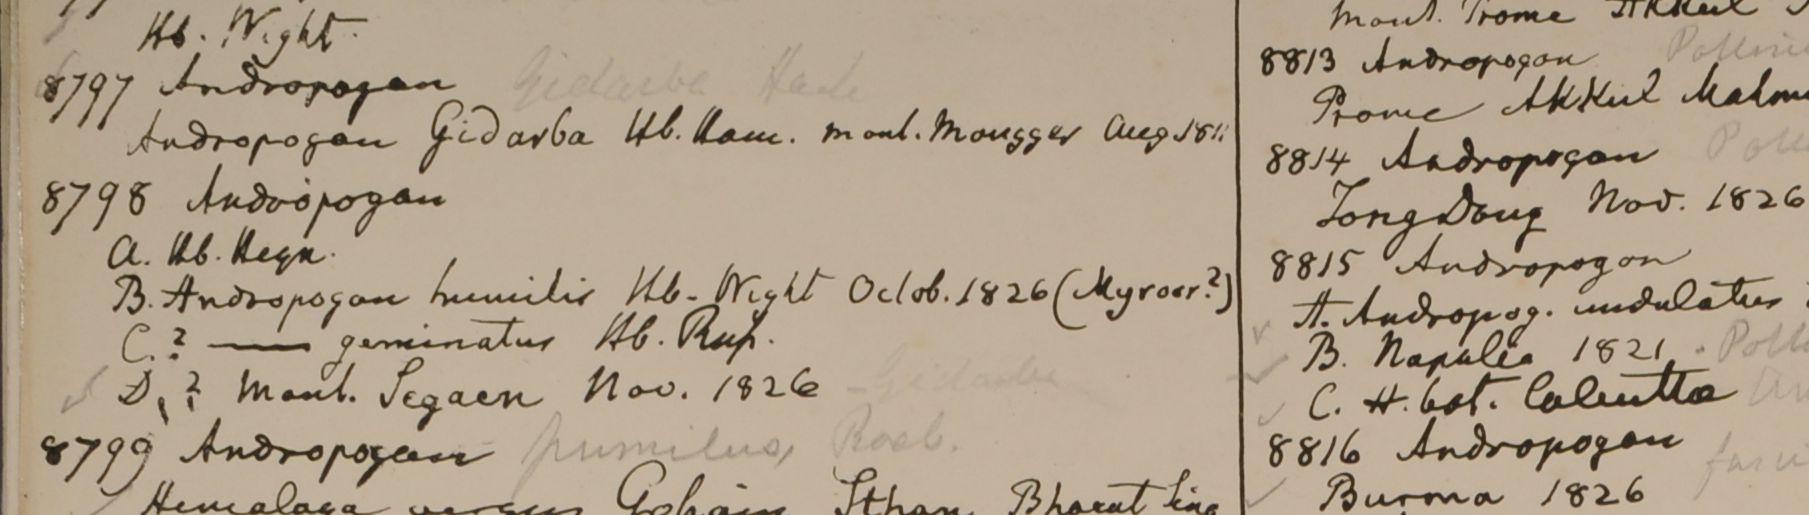 Hb. Wight.
8797 Andropogon Gidarba Ham
Andropogon Gidarba Hb. Ham. mont. Mongger Aug 181
8798 Andropogon
A. Hb. Heyn.
B. Andropogon humilis Hb. Wight Octob. 1826 (Mysoor?)
C.? — geminatus Hb. Rup.
D.? Mont. Segaen Nov. 1826 - Gidarba
8799 Andropogon - pumilus, Roxb.
Hemalaya Gosain Than, Bharut Sing
mont. Prome
8813 Andropogon
Prome
8814 Andropogon
TongDong Nov. 1826
8815 Andropogon
A. Andropog. undulatus
B. Napalia 1821.
C. H. bot. Calcutta
8816 Andropogon
Burma 1826